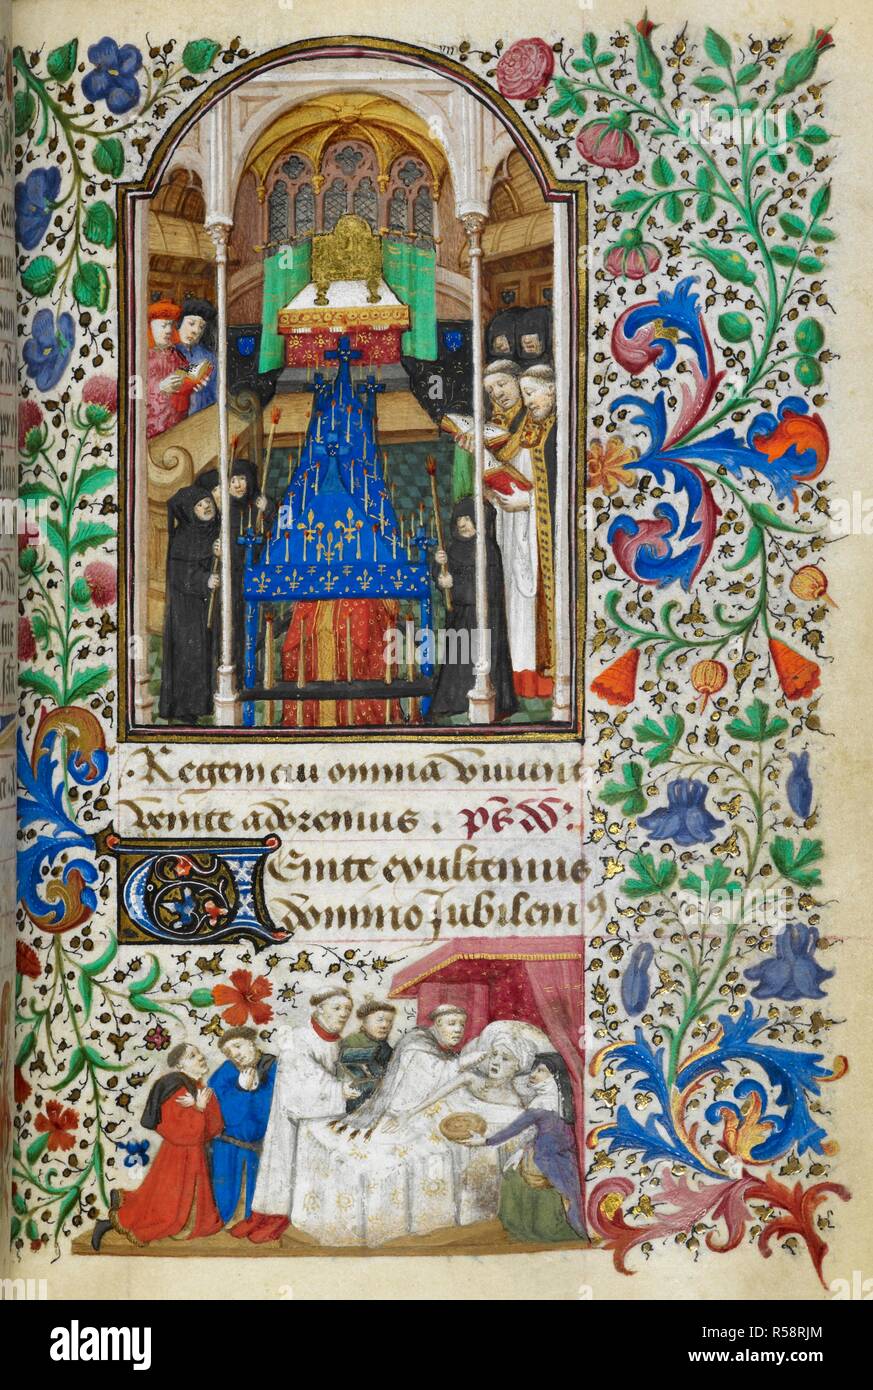 Regem cui omnia viuunt
venite adoremus. p̄s dd̄:
Uenite exultemus
domino Jubilem9
alamy
alamy
Image ID: R58RJM
www.alamy.com